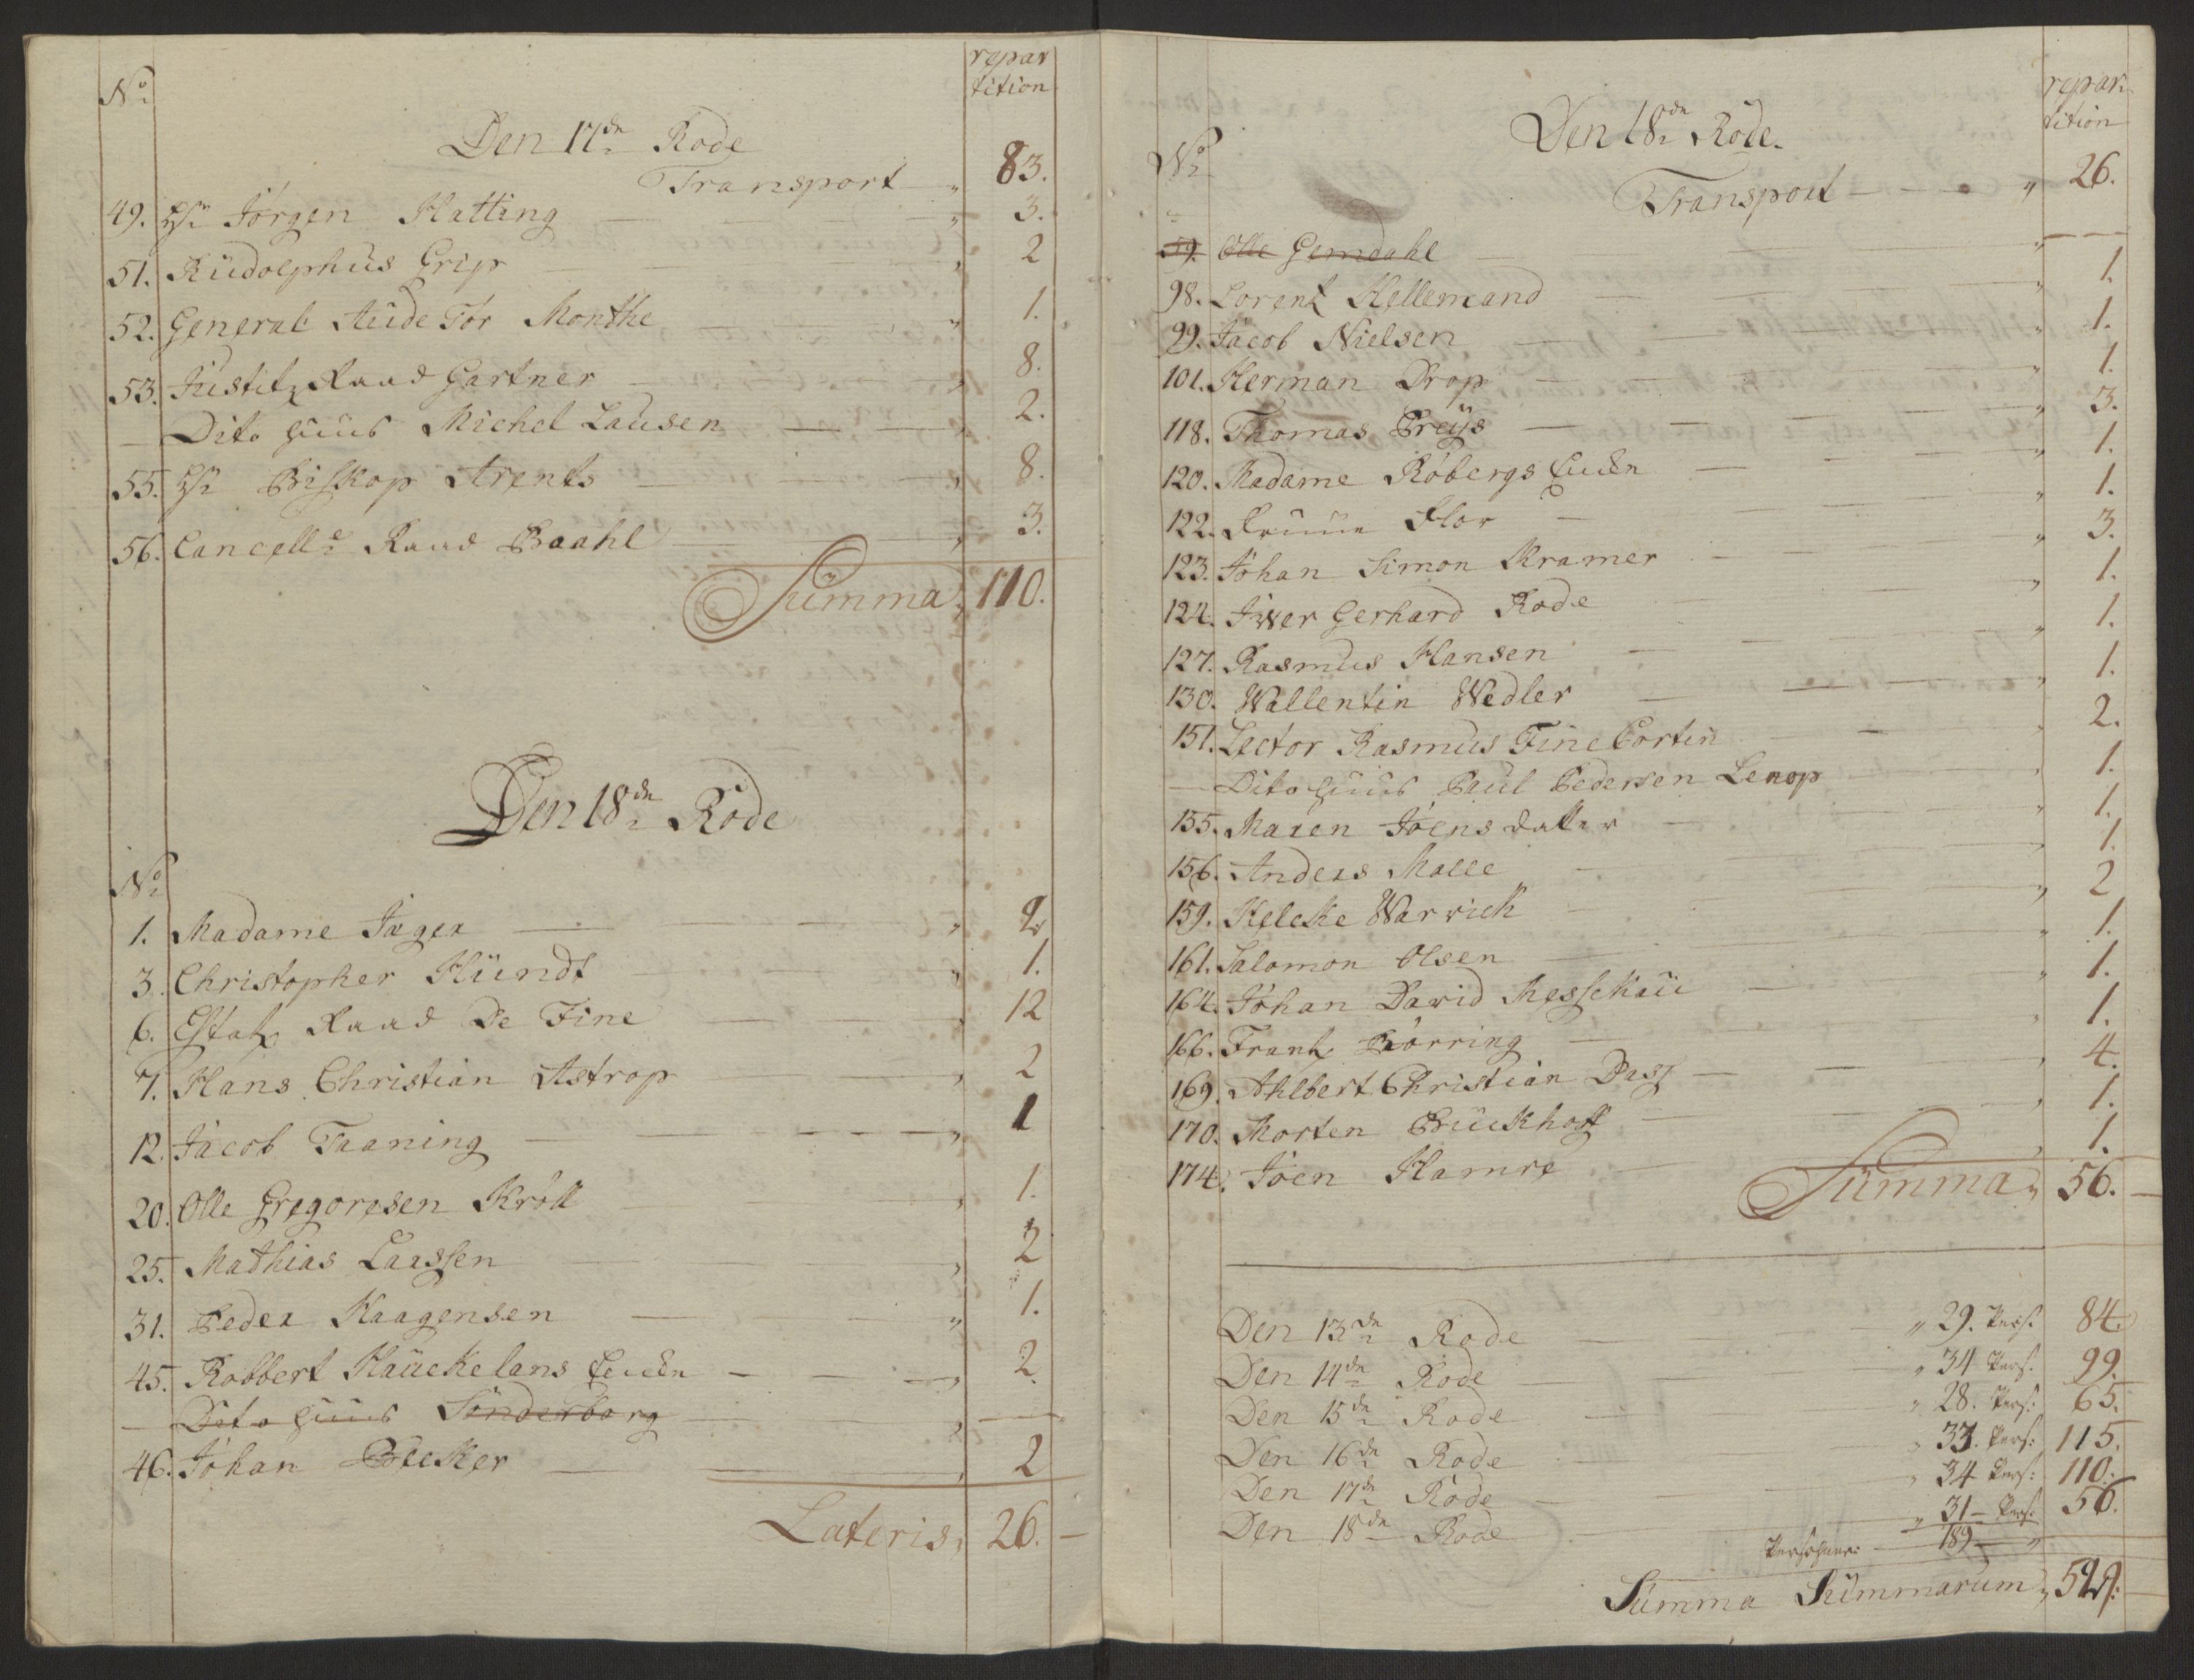 No
repar
tition
Den 17de Rode
Transport „ 83.
49. Hr Jørgen Hatting „ 3.
51. Rüdolphüs Grip „ 2
52. General Aude Tør Monthe „ 1.
53. Jüstitz Raad Gartner „ 8.
— Dito Huus Michel Lausen „ 2.
55. Hr Biskop Arents „ 8.
56. Cancelle Raad Baahl „ 3.
Summa „ 110.
Den 18de Rode
No
1. Madame Jæger „ 2
3. Christopher Hündt „ 1.
6. Etatz Raad De Fine „ 12
7. Hans Christian Astrop „ 2
12. Jacob Taaning „ 1
20. Olle Gregoresen Kröll „ 1.
25. Mathias Laassen „ 2
31. Peder Haagensen „ 1.
45. Robbert Haückelans Encke „ 2.
— Dito Huus Sönderborg „ —
46. Johan Becker „ 2
Lateris „ 26. —
repar
tition
Den 18de Rode.
No
Transport „ 26.
59. Olle Gemdahl „ —
98. Lorentz Hellemand „ 1.
99. Jacob Nielsen „ 1.
101. Herman Drop „ 1.
118. Thomas Breÿs „ 3.
120. Madame Röbergs Encke „ 1.
122. Fruue Flor „ 1.
123. Johan Simon Kramer „ 3.
124. Iwer Gerhard Rode „ 1.
127. Rasmus Hansen „ 1.
130. Wallentin Wedler „ 1.
151. Lector Rasmus Fine Cortin „ 2.
— Dito Huus Paul Pedersen Lenop „ 1.
155. Maren Joens datter „ 1.
156. Anders Malle „ 1.
159. Keleke Warwich „ 2
161. Salomon Olsen „ 1.
164. Johan David Messchau „ 1.
166. Frantz Börring „ 1.
169. Ahlbert Christian Dass „ 4.
170. Morten Brückhoff „ 1.
174. Joen Hamre „ 1.
Summa „ 56. —
Den 13de Rode „ 29. Pers: 84.
Den 14de Rode „ 34 Pers: 99.
Den 15de Rode „ 28. Pers: 65.
Den 16de Rode „ 33. Pers: 115.
Den 17de Rode „ 34 Pers: 110.
Den 18de Rode „ 31 — Pers: 56.
Persohner: — 189 — „
Summa Summarum „ 529: